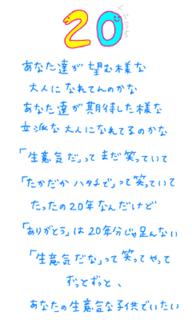 20
あなた達が望む様な
大人になれてんのかな
あなた達が期待した様な
立派な大人になれてるのかな
「生意気だ」ってまだ笑っていて
「たかだかハタチで」って笑っていて
たったの20年なんだけど
「ありがとう」は20年分じゃ足んない
「生意気だな」って笑ってやって
ずっとずっと、
あなたの生意気な子供でいたい